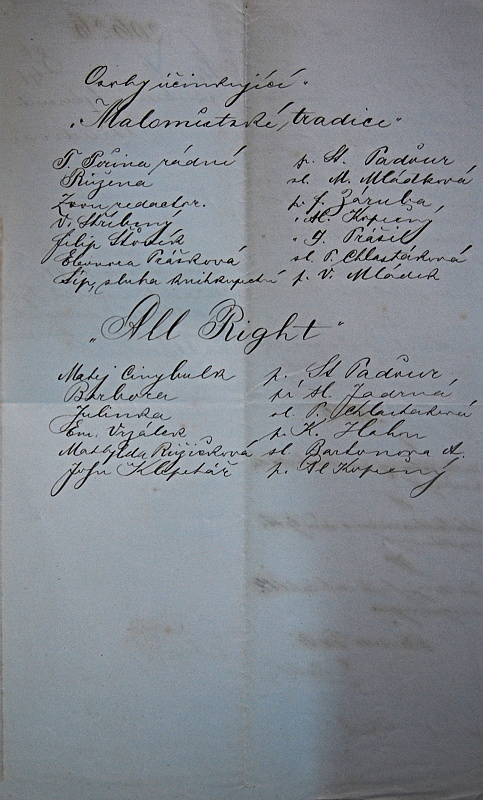 Osoby účinkující
„Maloměstské tradice"
T. Peřina rádní p. St. Paďour
Růžena sl. M. Mládková
Zvon redaktor. p. J. Záruba
V. Stříbrný " Al. Kopečný
Filip Šťovík " J. Prášil
Eleonora Prášková sl. P. Chlastáková
Šíp, sluha knihkupecký p. V. Mládek
„All Right"
Matěj Cinybulk p. St Paďour
Barbora pí Al. Jadrná
Julinka sl. P. Chlastáková
Em. Vrzálek p. K. Hahn
Matylda Růžičková sl. Bartoňova A.
John Klapetář p. Al Kopečný